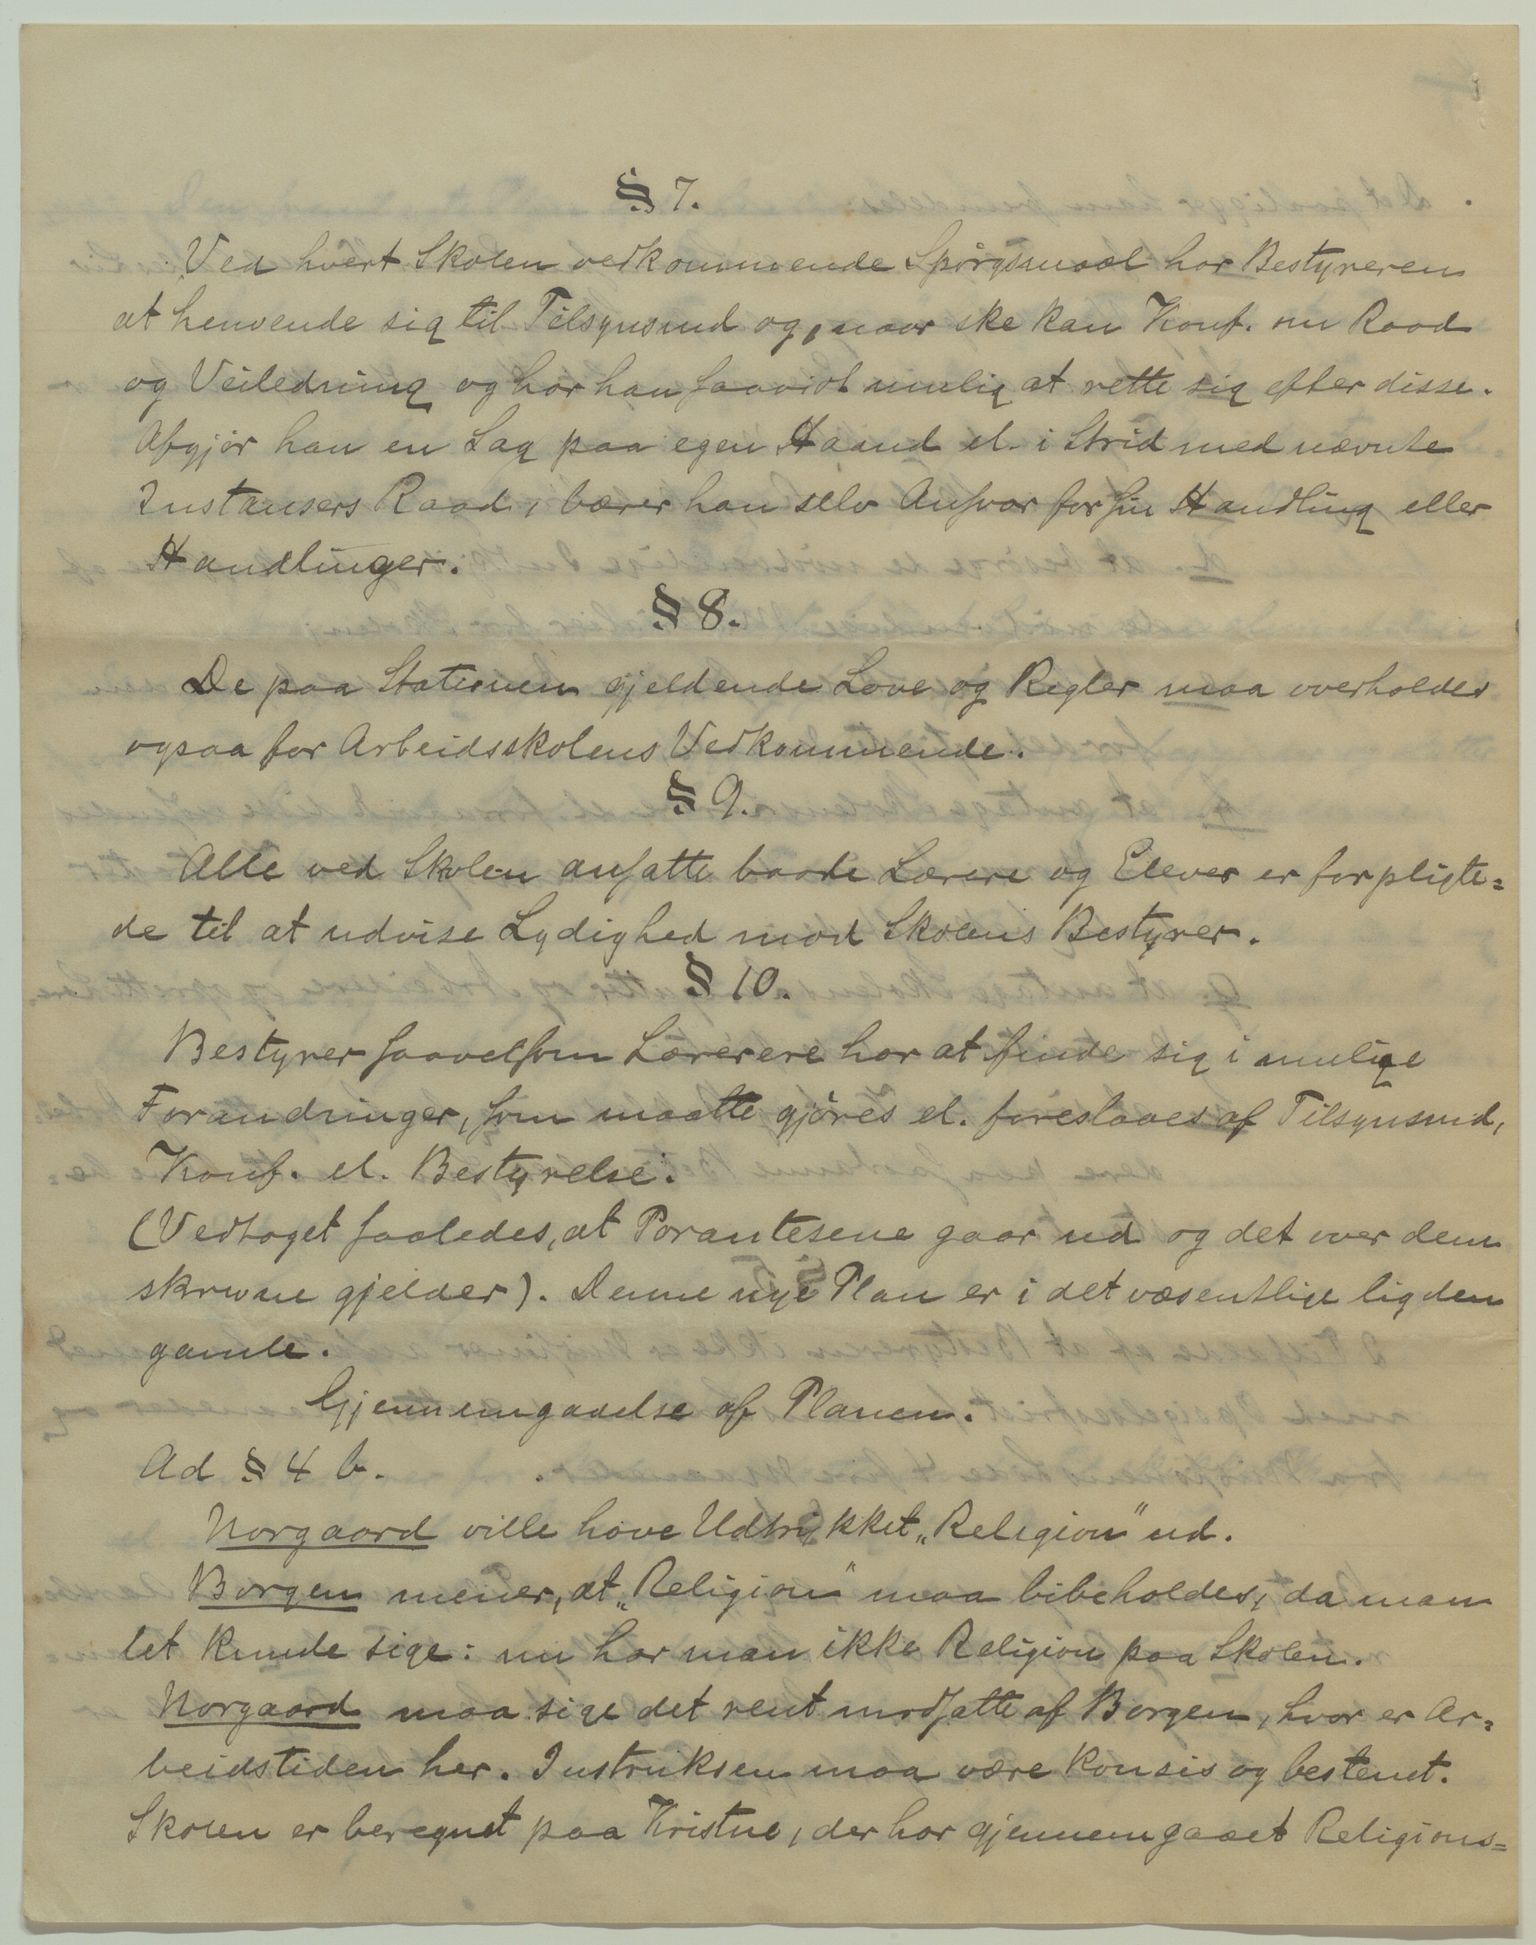 § 7.
Ved hvert Skolen vedkommende Spörgsmaal har Bestyreren
at henvende sig til Tilsynsmd og, naar ske kan Konf. om Raad
og Veiledning og har han saavidt mulig at rette sig efter disse.
Afgjör han en Sag paa egen Haand el. i Strid med nævnte
Instansers Raad, bærer han selv Ansvar for sin Handling eller
Handlinger.
§ 8.
De paa Stationen gjeldende Love og Regler maa overholdes
ogsaa for Arbeidsskolens Vedkommende.
§ 9.
Alle ved Skolen ansatte baade Lærere og Elever er forpligte=
de til at udvise Lydighed mod Skolens Bestyrer.
§ 10.
Bestyrer saavelsom Lærerere har at finde sig i mulige
Forandringer, som maatte gjöres el. foreslaaes af Tilsynsmd,
Konf. el. Bestyrelse.
(Vedtaget saaledes, at Parantesene gaar ud og det over dem
skrevne gjelder). Denne nye Plan er i det væsentlige lig den
gamle.
Gjennemgaaelse af Planen.
Ad § 4 b.
Norgaard ville have Udtrykket „Religion" ud.
Borgen mener, at „Religion" maa bibeholdes, da man
let kunde sige: nu har man ikke Religion paa Skolen.
Norgaard maa sige det rent modsatte af Borgen, hvor er Ar=
beidstiden her. Instruksen maa være konsis og bestemt.
Skolen er beregnet paa Kristne, der har gjennemgaaet Religions=